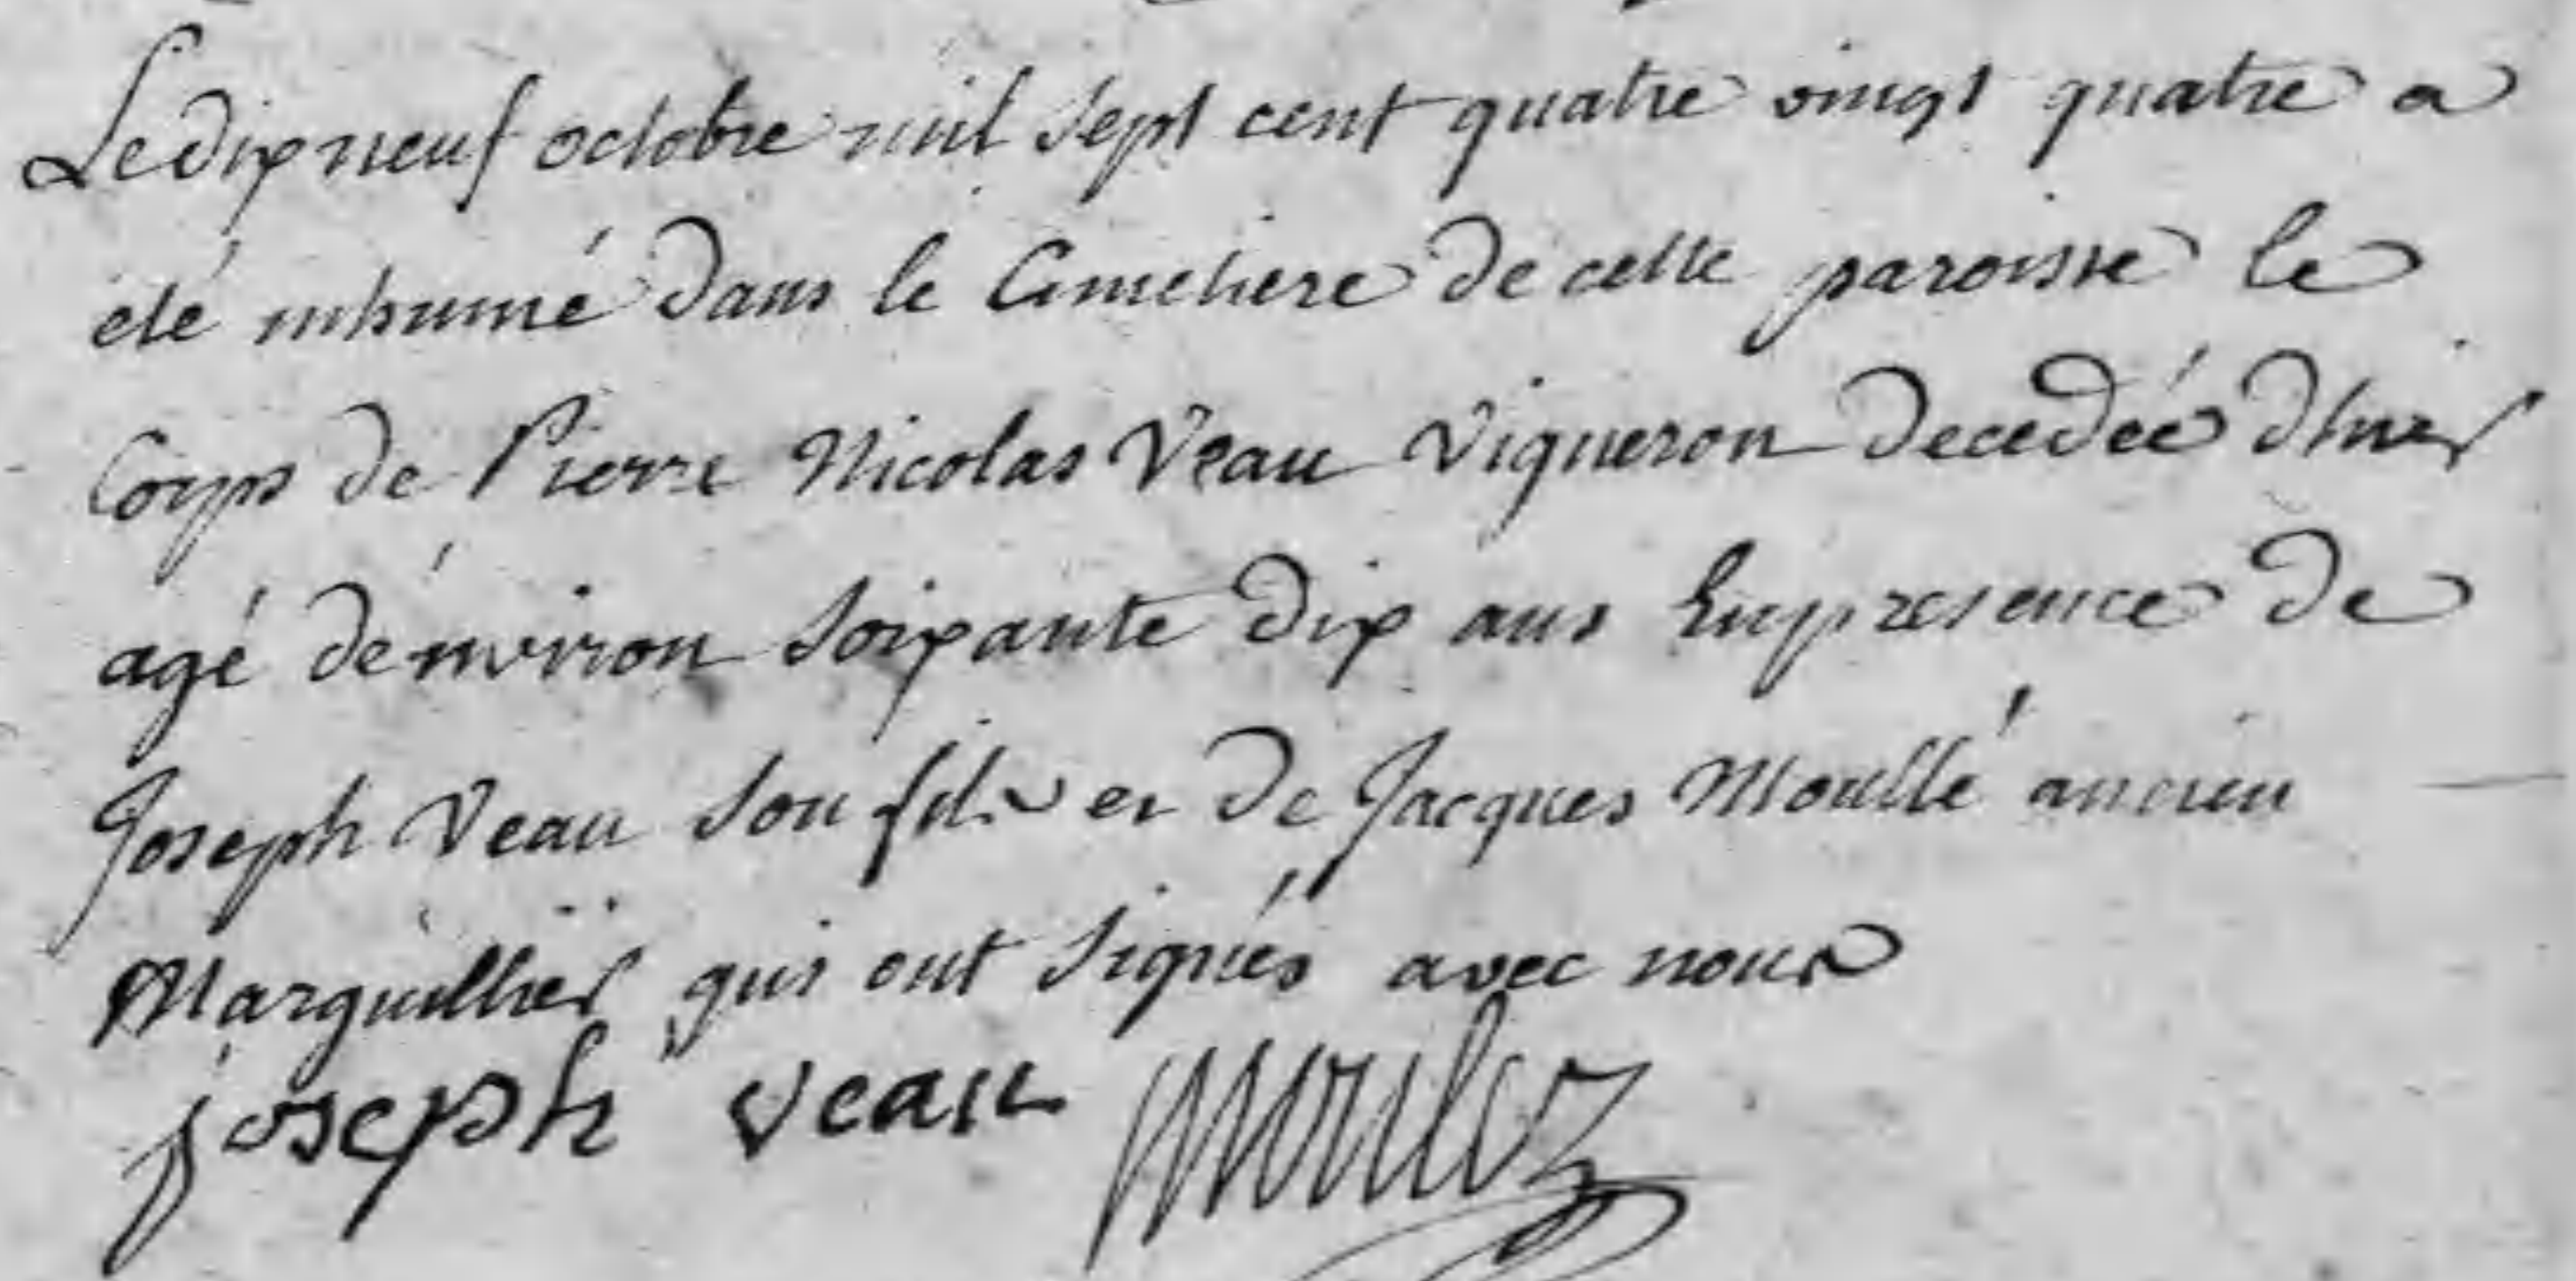 Le dix neuf octobre mil sept cent quatre vingt quatre a
eté inhumé dans le Cimetiere de cette paroisse le
Corps de Pierre Nicolas Veau Vigneron decedéé d'hier
agé dénviron soixante dix ans En presence de
Joseph Veau son fils et de Jacques Moullé ancien
Marguillier qui ont signés avec nous
joseph veau moulez